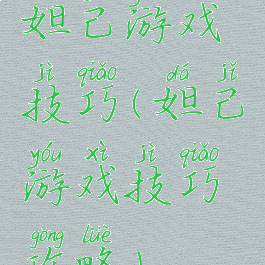 妲己游戏
jì qiǎo dá jǐ
技巧(妲己
yóu xì jì qiǎo
游戏技巧
gōng lüè
攻略)